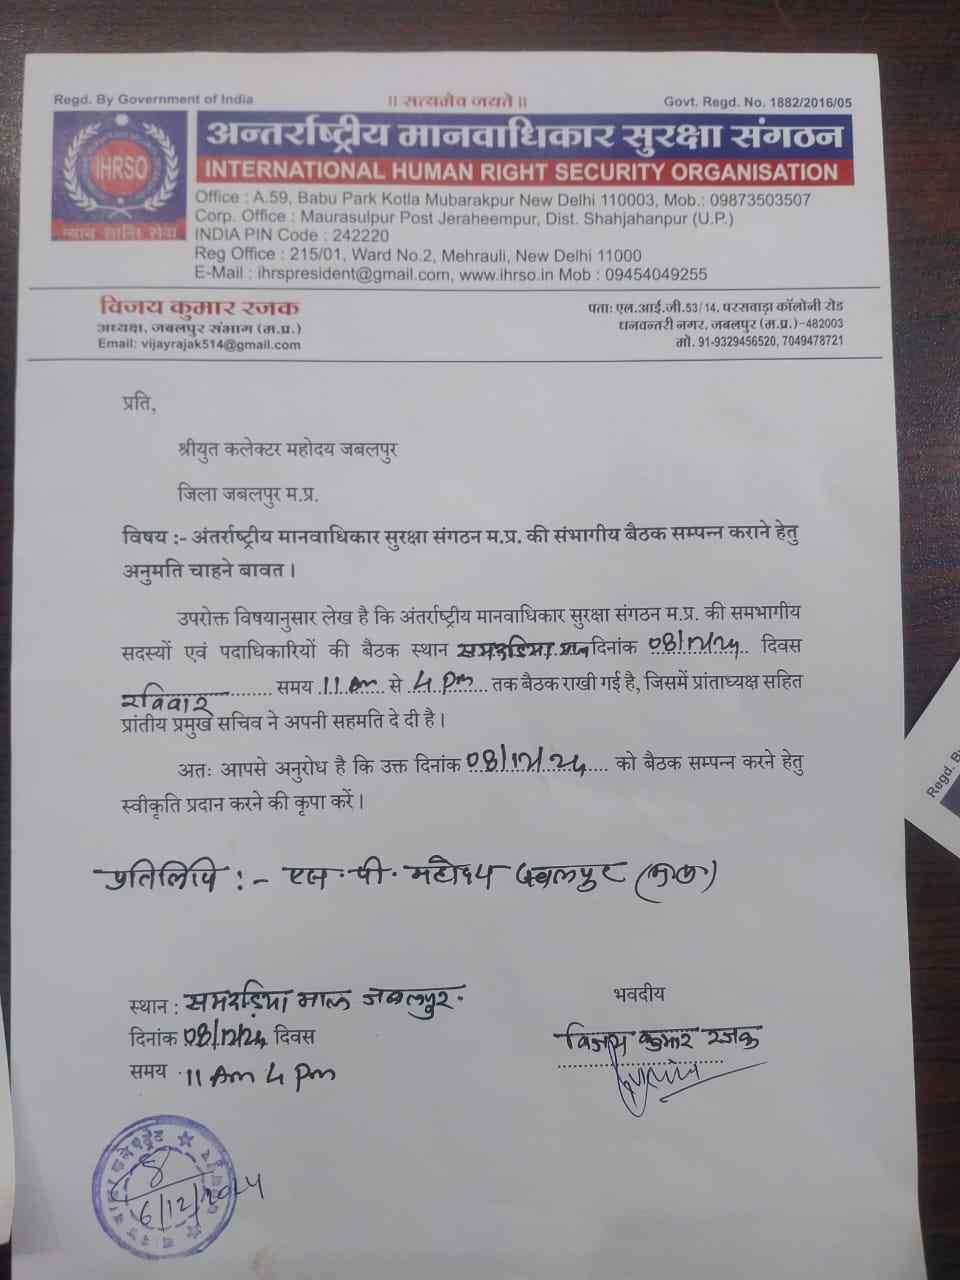 Regd. By Government of India
|| सत्यमेव जयते ||
Govt. Regd. No. 1882/2016/05
IHRSO
न्याय शान्ति सेवा
अन्तर्राष्ट्रीय मानवाधिकार सुरक्षा संगठन
INTERNATIONAL HUMAN RIGHT SECURITY ORGANISATION
Office : A.59, Babu Park Kotla Mubarakpur New Delhi 110003, Mob.: 09873503507
Corp. Office : Maurasulpur Post Jeraheempur, Dist. Shahjahanpur (U.P.)
INDIA PIN Code : 242220
Reg Office : 215/01, Ward No.2, Mehrauli, New Delhi 11000
E-Mail : ihrspresident@gmail.com, www.ihrso.in Mob : 09454049255
विजय कुमार रजक
अध्यक्ष, जबलपुर संभाग (म.प्र.)
Email: vijayrajak514@gmail.com
पता: एल.आई.जी.53/14, परसवाड़ा कॉलोनी रोड
धनवन्तरी नगर, जबलपुर (म.प्र.)-482003
मो. 91-9329456520, 7049478721
प्रति,
श्रीयुत कलेक्टर महोदय जबलपुर
जिला जबलपुर म.प्र.
विषय :- अंतर्राष्ट्रीय मानवाधिकार सुरक्षा संगठन म.प्र. की संभागीय बैठक सम्पन्न कराने हेतु
अनुमति चाहने बावत।
उपरोक्त विषयानुसार लेख है कि अंतर्राष्ट्रीय मानवाधिकार सुरक्षा संगठन म.प्र. की समभागीय
सदस्यों एवं पदाधिकारियों की बैठक स्थान समदड़िया माल दिनांक 08/12/24 दिवस
रविवार समय 11 Am से 4 pm तक बैठक राखी गई है, जिसमें प्रांताध्यक्ष सहित
प्रांतीय प्रमुख सचिव ने अपनी सहमति दे दी है।
अतः आपसे अनुरोध है कि उक्त दिनांक 08/12/24 को बैठक सम्पन्न करने हेतु
स्वीकृति प्रदान करने की कृपा करें।
प्रतिलिपि :- एस.पी. महोदय जबलपुर
स्थान : समदड़िया माल जबलपुर.
दिनांक 08/12/24 दिवस
समय 11 Am 4 pm
भवदीय
विजय कुमार रजक
6/12/2024
Regd. By